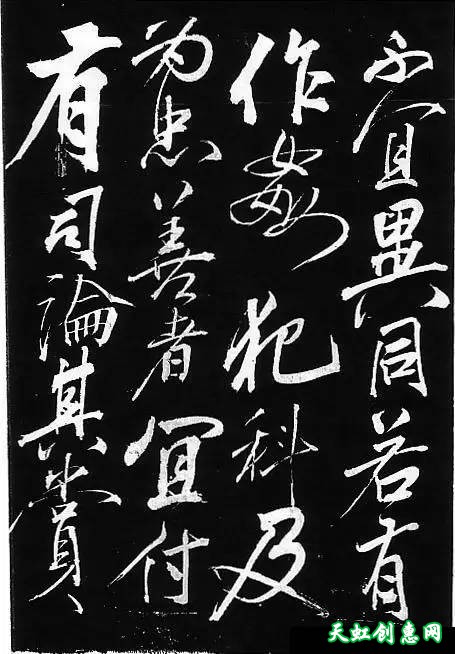 不宜異同若有
作姦犯科及
為忠善者宜付
有司論其賞
天虹创惠网